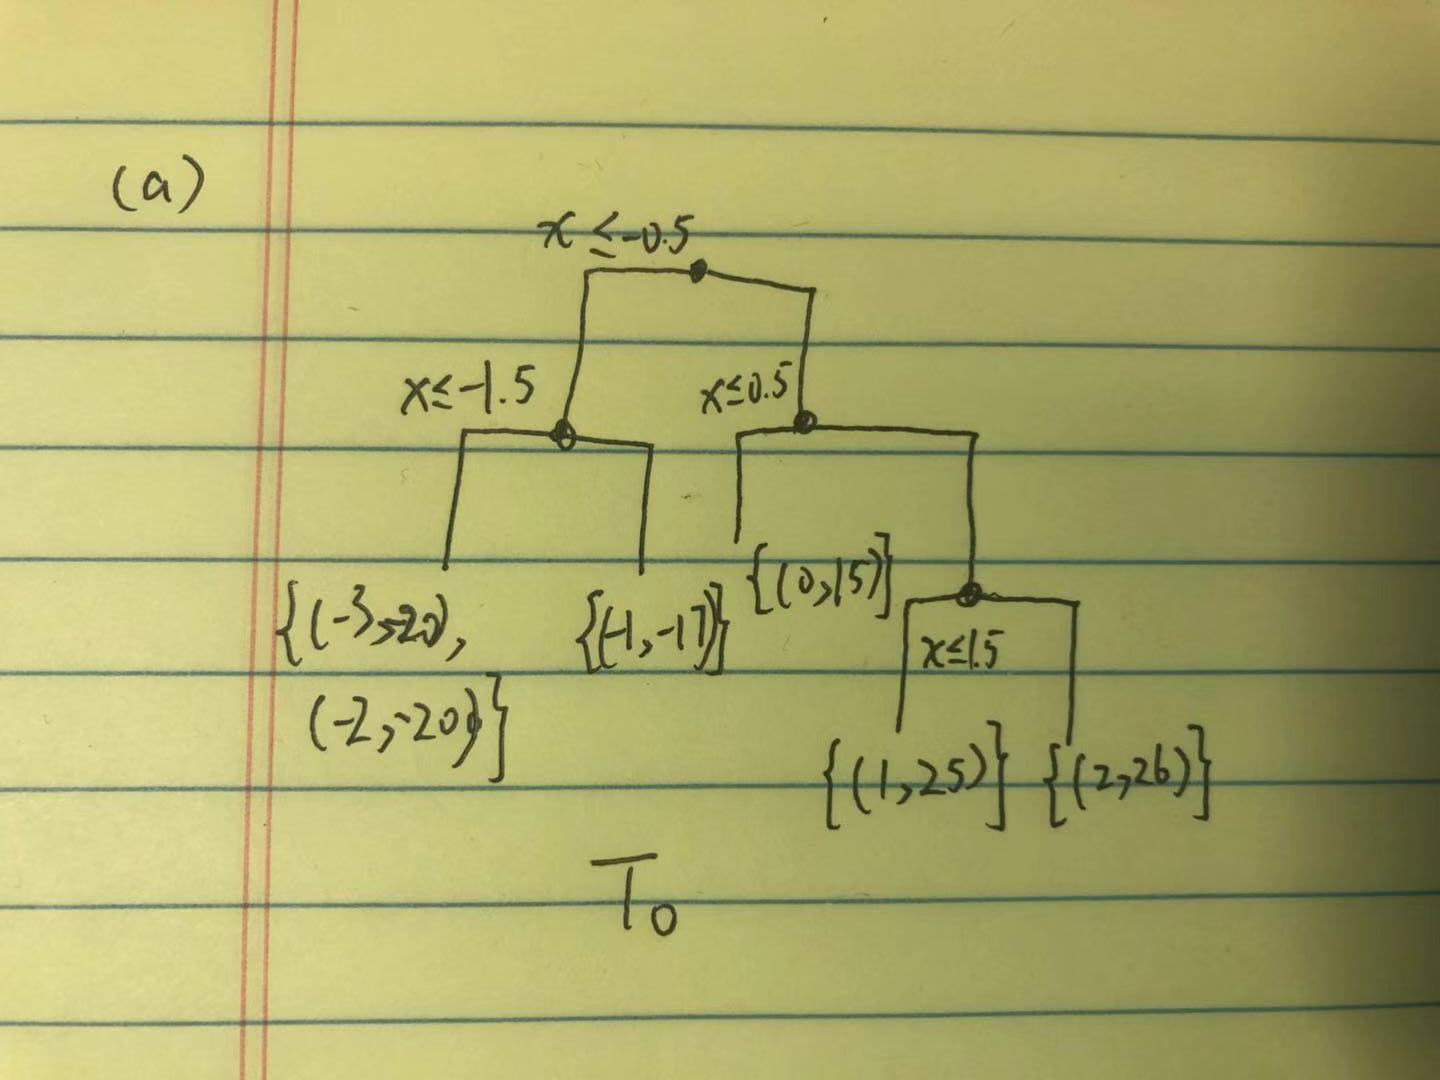 (a)
x ≤ -0.5
x ≤ -1.5
x ≤ 0.5
{(-3,-20),
(-2,-20)}
{(-1,-17)}
{(0,15)}
x ≤ 1.5
{(1,25)}
{(2,26)}
T₀